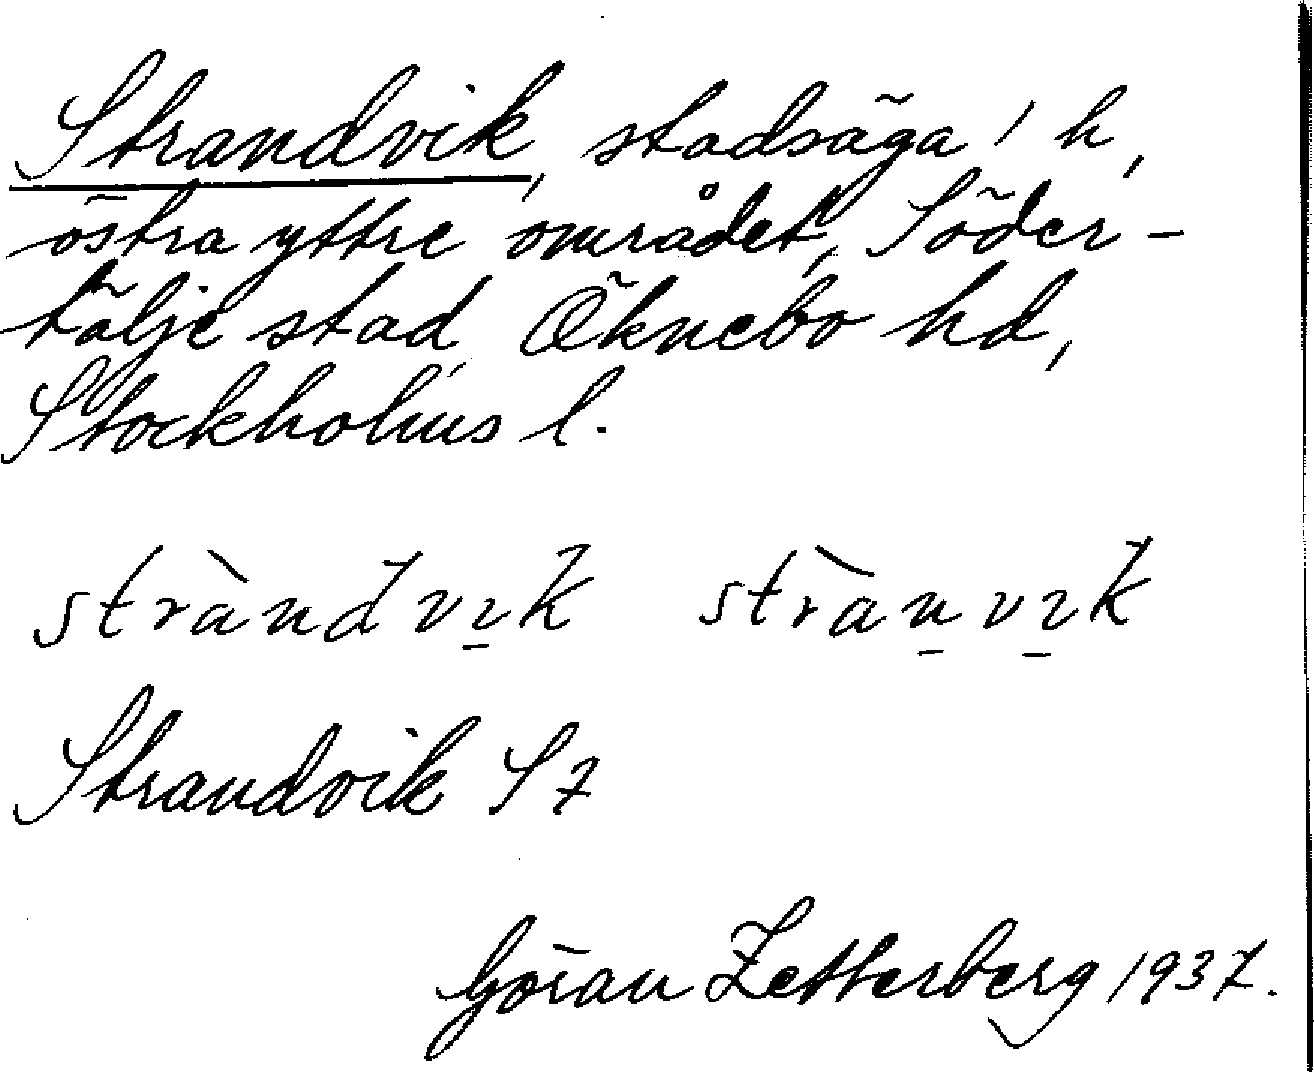 Strandvik, stadsäga 1 h,
östra yttre området, Söder-
tälje stad, Öknebo hd,
Stockholms l.
stràndvık strànvık
Strandvik S7
Göran Zetterberg 1937.